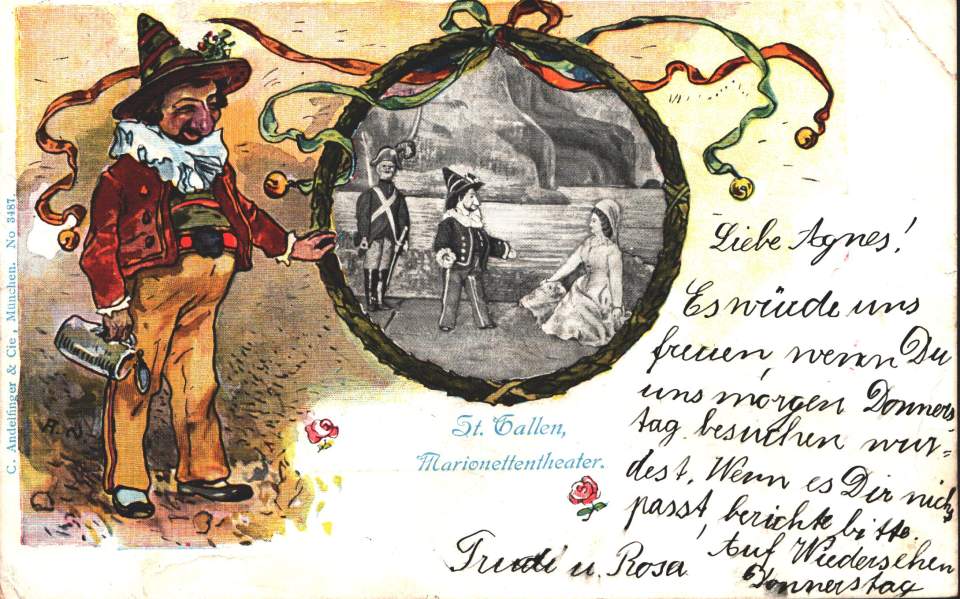 C. Andelfinger & Cie, München. No 3487.
St. Gallen,
Marionettentheater.
Liebe Agnes!
Es würde uns
freuen, wenn Du
uns morgen Donners
tag besuchen wur-
dest. Wenn es Dir nicht
passt, berichte bitte.
Auf Wiedersehen
Donnerstag
Trudi u. Rosa